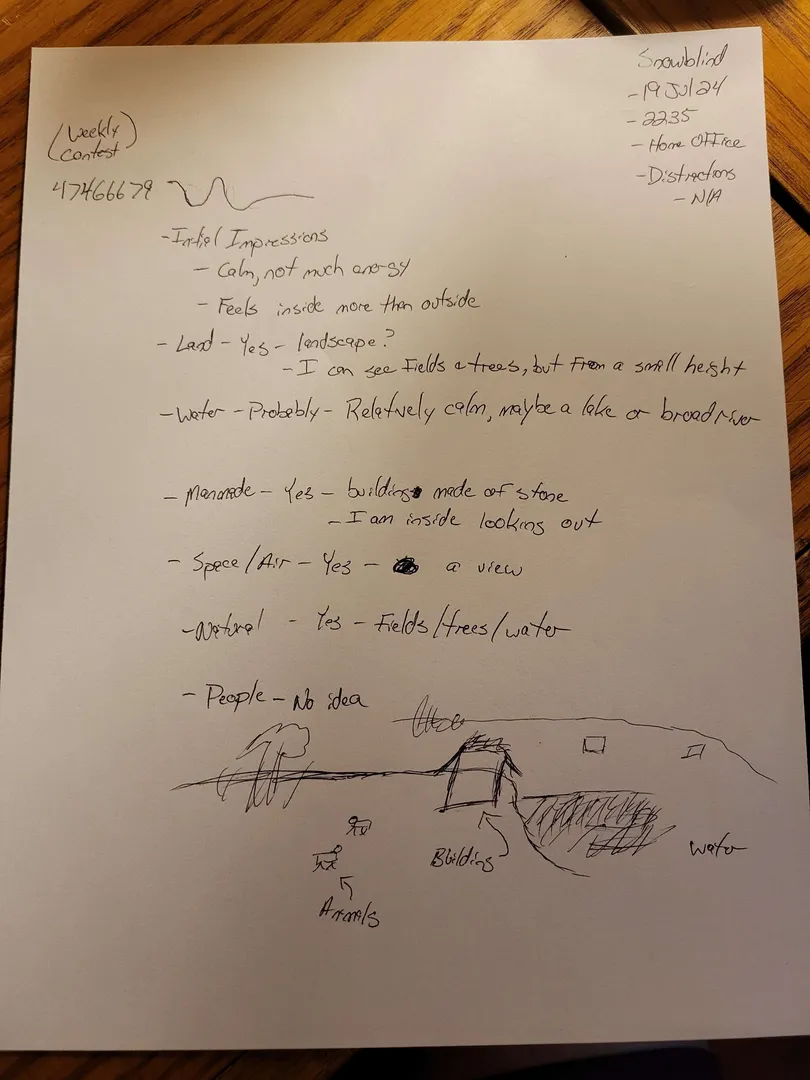 Snowblind
- 19 Jul 24
- 2235
- Home Office
- Distractions
- N/A
(Weekly Contest)
47466679
- Initial Impressions
- Calm, not much energy
- Feels inside more than outside
- Land - Yes - landscape?
- I can see Fields & trees, but From a small height
- Water - Probably - Relatively calm, maybe a lake or broad river
- Manmade - Yes - building made of stone
- I am inside looking out
- Space/Air - Yes - a view
- Natural - Yes - Fields/trees/water
- People - No idea
Building
water
Animals